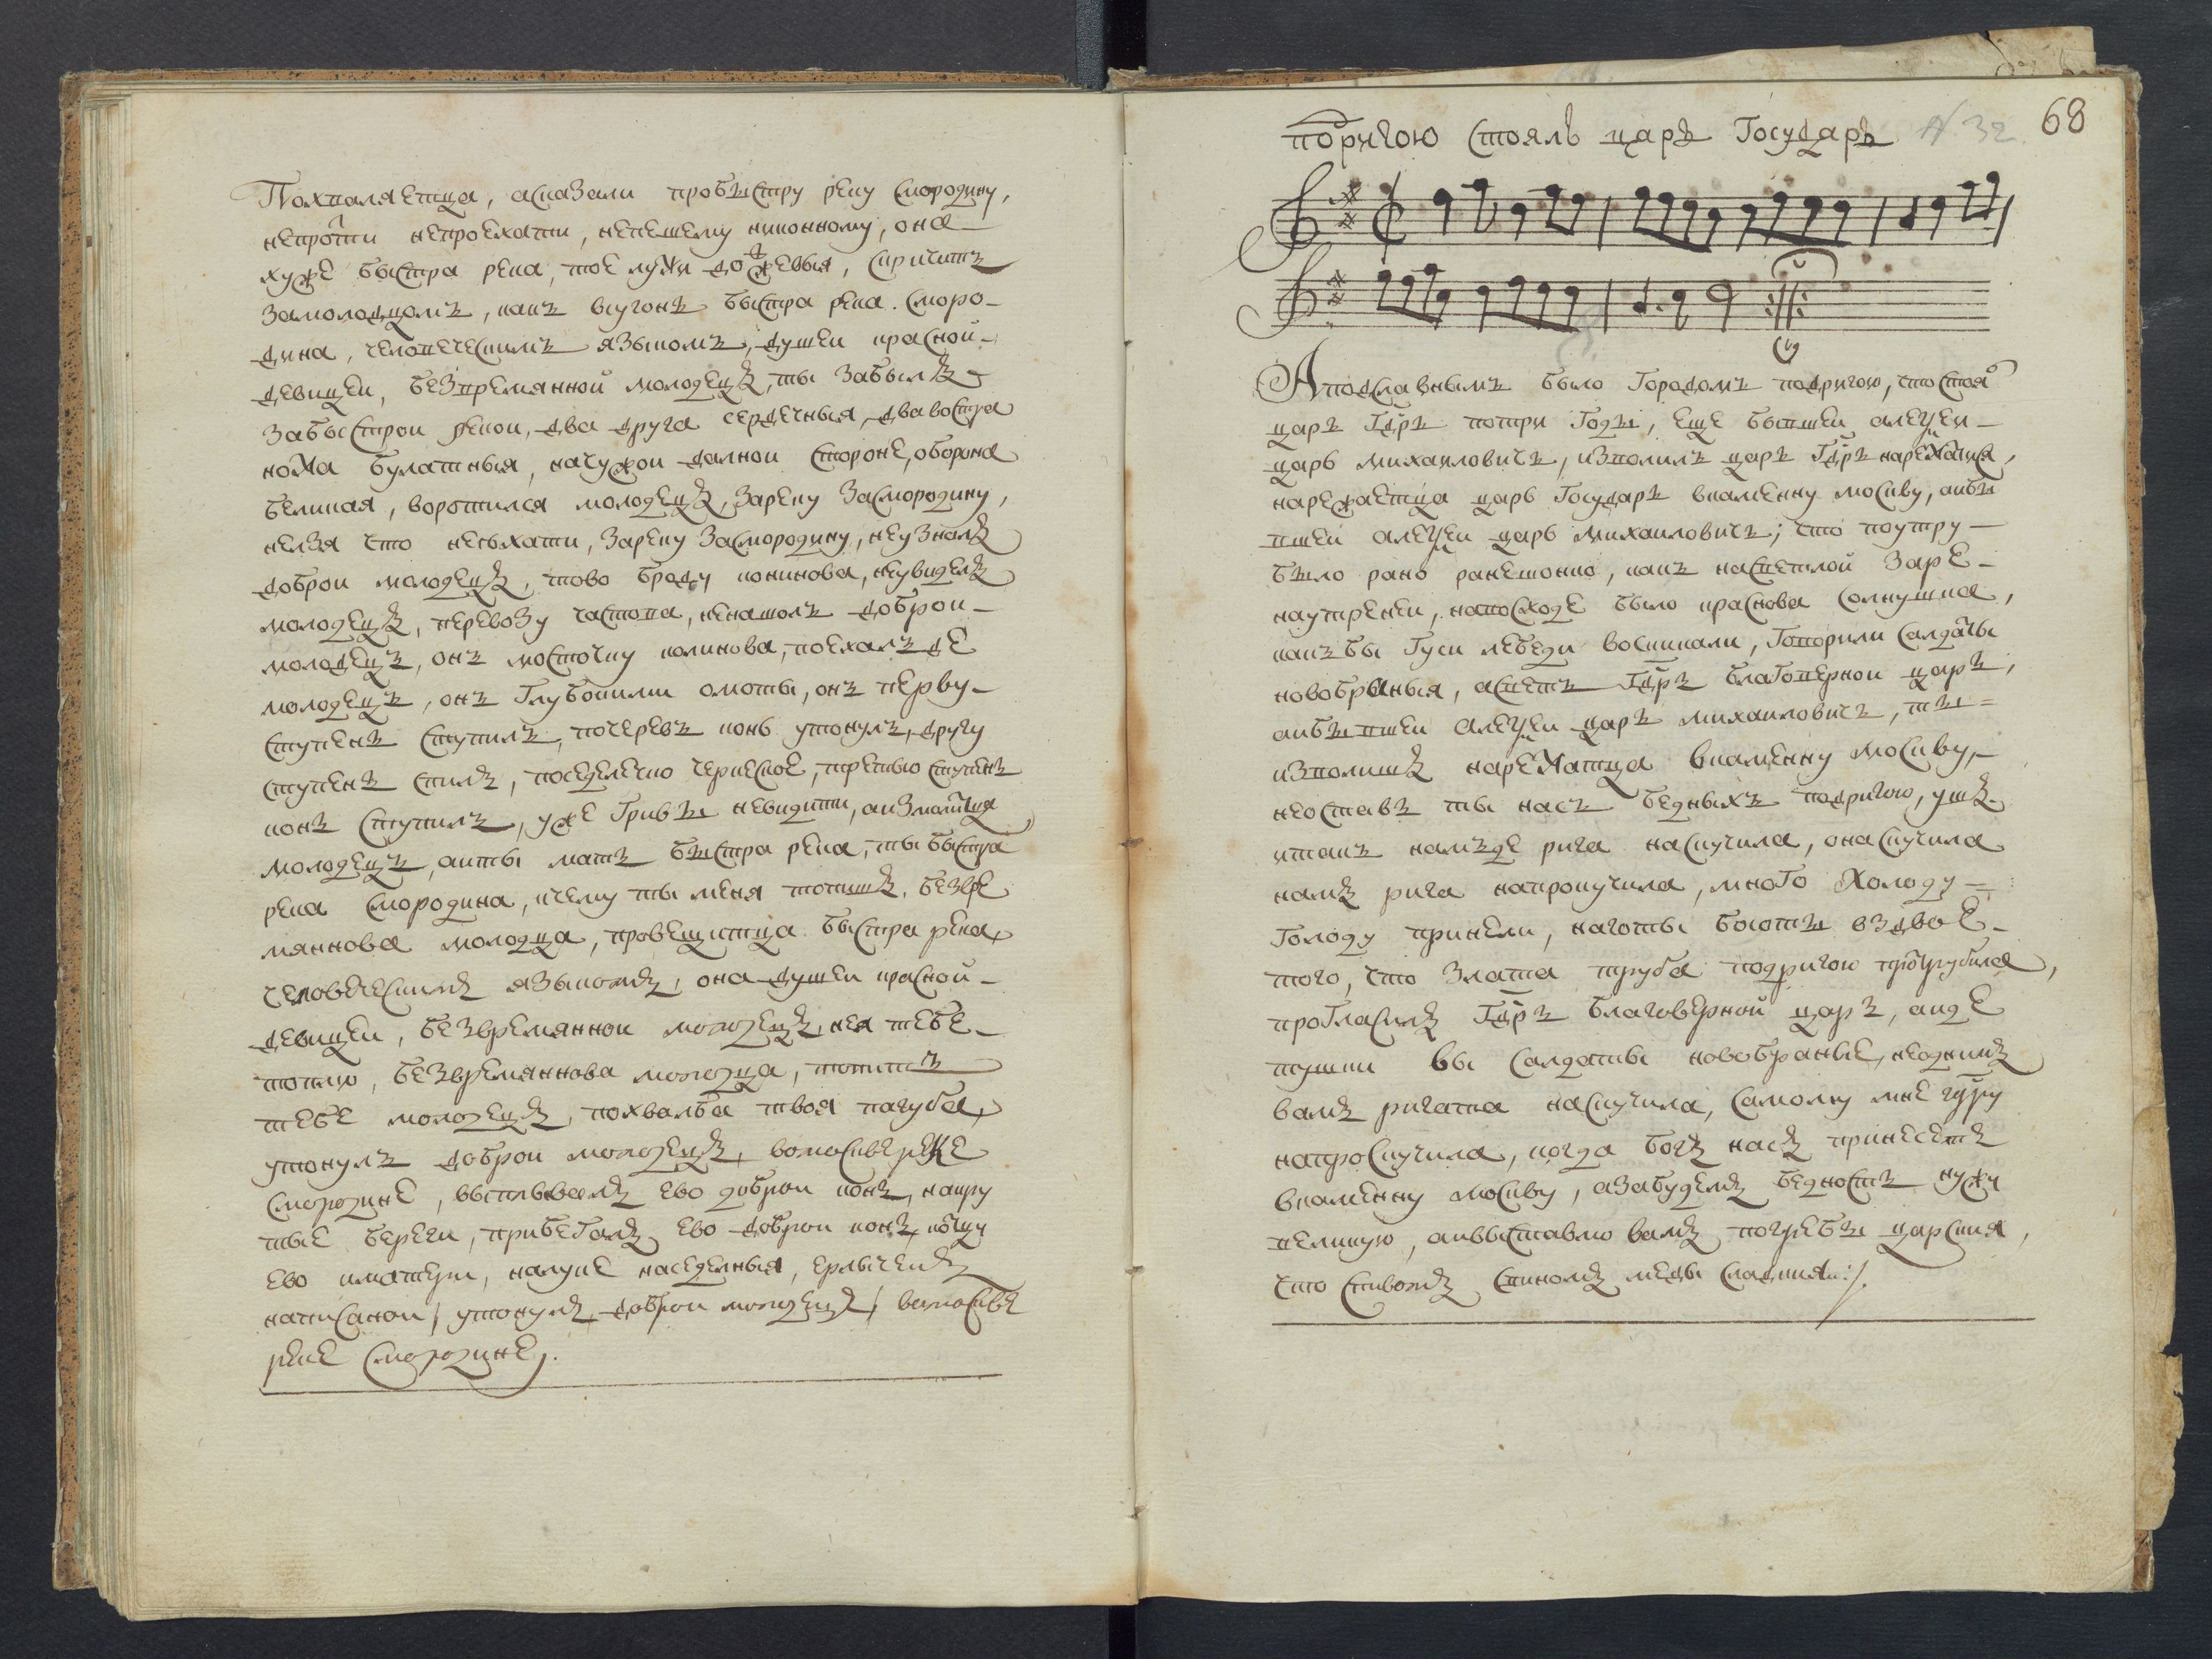 Похваляетца, асказали пробыстру реку смородину,
непройти непроехати, непешему никонному, она
хуже быстра река, тое лужи дожжевыя, скричитъ
замолодцомъ, какъ вкугонь быстра река. Смро-
дина, человеческимъ языкомъ, душеи красной
девицеи, безвремянной молодецъ, ты забылъ
забыстрои рекои, два друга сердечныя, два востра
ножа булатныя, начужои далнои стороне, оборона
великая, воротился молодецъ, зареку засмородину,
нелзя что неехати, зареку засмородину, неузналъ
доброи молодецъ, тово броду конинова, неувиделъ
молодецъ, перевозу частова, ненашолъ доброи
молодецъ, онъ мосточку калинова, поехалъ де
молодецъ, онъ глубокими омоты, онъ перву
ступень ступилъ, почеревъ конь утонулъ, другу
ступень стилъ, поседелечко черкеское, третью ступень
конь ступилъ, уже гривы невидити, аизмолитца
молодецъ, аиты мать быстра река, ты быстра
река смородина, кчему ты меня топишъ, безвре
мяннова молодца, провещитца быстра река
человеческимъ языкомъ, она душеи красной
девицеи, безвремяннои молодецъ, нея тебе
топлю, безвремяннова молодца, топитъ
тебе молодецъ, похвалба твоя пагуба,
утонулъ доброи молодецъ, вомоскве реке
смородине, выплывалъ ево доброи конь, накру
тые береги, прибегалъ ево доброи конь, котцу
ево иматери, налуке наседелныя, ерлычекъ
написанои, утонулъ доброи молодецъ, вамоскве
реке смородине.
подригою стоялъ царь Государь N 32 68
Аподславнымъ было городомъ подригою, что стоя
царь Гдрь потри годы, еще бывшеи алеѯеи
царь михаиловичь, изволилъ царь Гдрь нарежатца,
нарежаетца царь Государь вкаменну москву, аибы
вшеи алеѯеи царь михаиловичь; что поутру
было рано ранешонко, какъ насветлой заре
наутренеи, навосходе было краснова солнушка,
какъ бы гуси лебеди воскикали, говорили салдаты
новобраныя, асветъ Гдрь благоверной царь,
аибывшеи алеѯеи царь михаиловичь, ты
изволишъ нарежатца вкаменну москву,
неоставь ты насъ бедныхъ подригою, ужъ
итакъ намъде рига наскучила, она скучила
намъ рига напрокучила, много холоду
голоду принели, наготы босоты вздвое
того, что злата труба подригою протрубила,
прогласилъ Гдрь благоверной царь, аиде
тушки вы салдаты новобраные, неоднимъ
вамъ ригата наскучила, самому мне гдрю
напроскучила, когда богъ насъ принесетъ
вкаменну москву, азабудемъ бедность нужу
великую, аивыставлю вамъ погребы царския,
что спивомъ свиномъ меды сладкия:/.